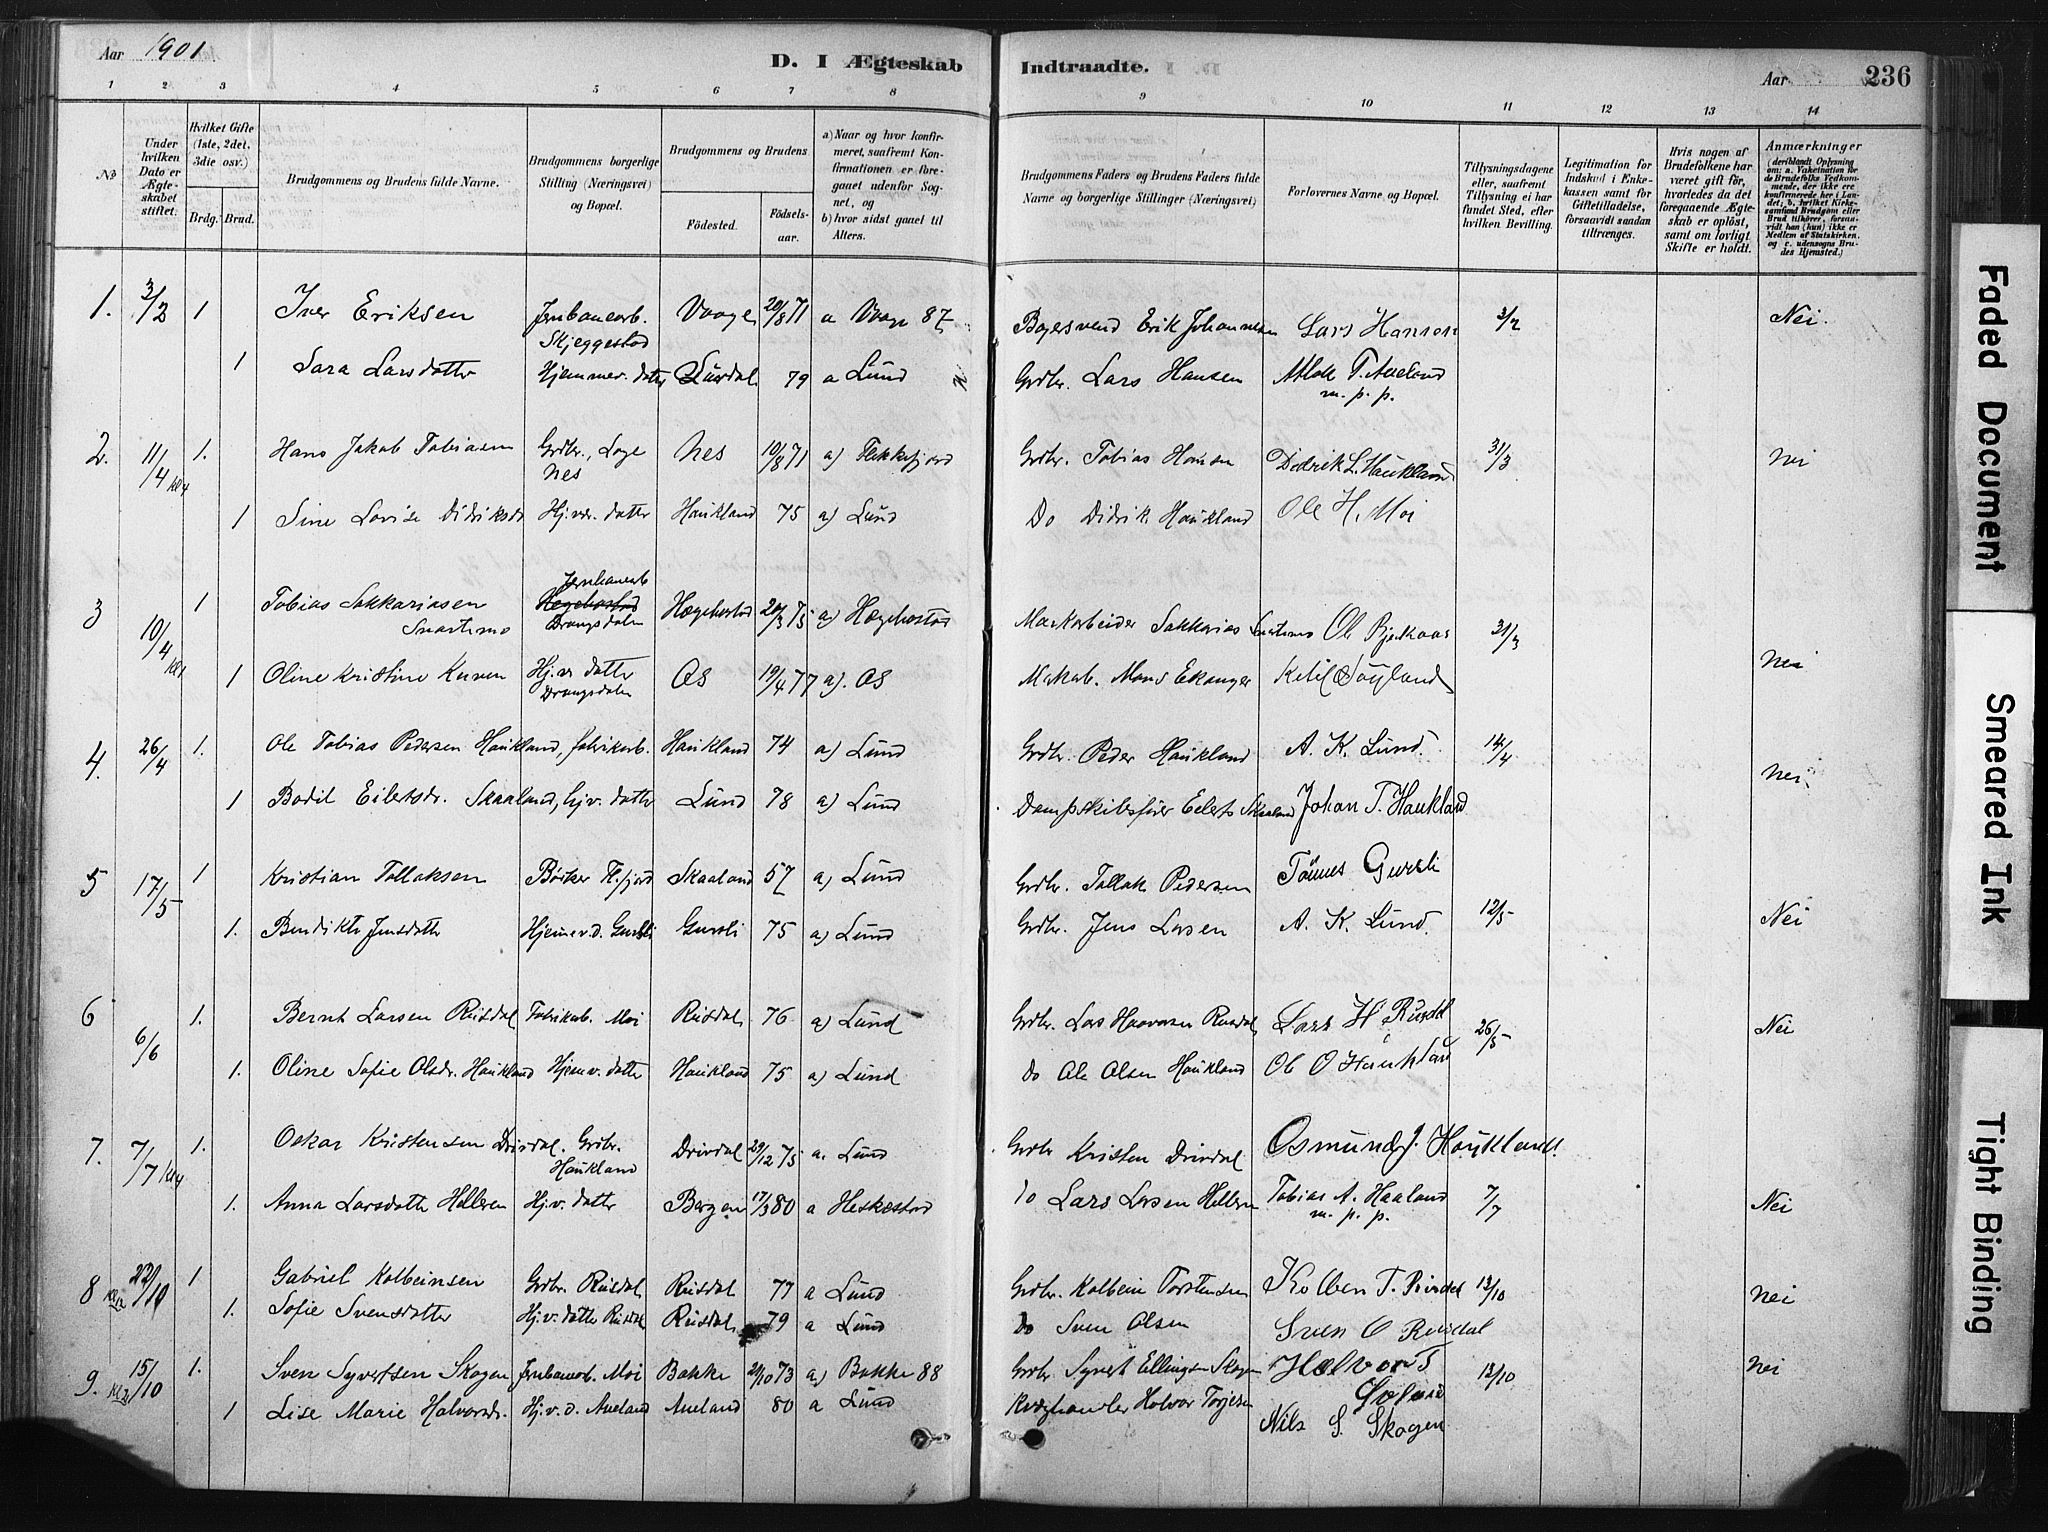 Aar 1901
D. I Ægteskab Indtraadte.
Aar 236
1 2 3 4 5 6 7 8 9 10 11 12 13 14
No
Under hvilken Dato er Ægteskabet stiftet.
Hvilket Gifte (1ste, 2det, 3die osv.)
Brdg. Brud.
Brudgommens og Brudens fulde Navne.
Brudgommens borgerlige Stilling (Næringsvei) og Bopæl.
Brudgommens og Brudens
Fødested. Fødselsaar.
a) Naar og hvor konfirmeret, saafremt Konfirmationen er foregaaet udenfor Sognet, og b) hvor sidst gaaet til Alters.
Brudgommens Faders og Brudens Faders fulde Navne og borgerlige Stillinger (Næringsvei)
Forlovernes Navne og Bopæl.
Tillysningsdagene eller, saafremt Tillysning ei har fundet Sted, efter hvilken Bevilling.
Legitimation for Indskud i Enkekassen samt for Giftetilladelse, forsaavidt saadan tiltrænges.
Hvis nogen af Brudefolkene har været gift før, hvorledes da det foregaaende Ægteskab er opløst, samt om lovligt Skifte er holdt.
Anmærkninger (deriblandt Oplysning om: a. Vakcination for de Brudefolks Vedkommende, der ikke ere konfirmerede her i Landet; b. hvilket Kirkesamfund Brudgom eller Brud tilhører, forsaavidt han (hun) ikke er Medlem af Statskirken, og c. udensogns Brudes Hjemsted.)
1. 3/2 1 Iver Eriksen Jernbanearb. Skjeggestad Vaage 20/8 71 a Vaage 87 Erik Johannesen Lars Hansen 3/2 Nei.
1 Sara Larsdatter Hjemmev. datter 79 a Lund Grdbr. Lars Hansen T. Aueland m. p. p.
2. 11/4 kl 4 1. Hans Jakob Tobiasen Grdbr., Loge Nes Nes 10/8 71 a) Flekkefjord Grdbr. Tobias Hansen Didrik L. Haukland 31/3 Nei
1 Sine Lovise Didriksdr Hj.v. datter Haukland 75 a) Lund Do Didrik Haukland Ole H. Moi
3 10/4 1 Tobias Sakkariasen Snartemo Jernbanearb Drangsdalen Hægebostad 20/3 75 a) Hægebostad Sakkarias Snartemo Ole Bjerkaas 31/3
1 Oline Kristine Hj.v. datter Drangsdalen Os 19/4 77 a). Os Mons Ekanger Ketil Søyland Nei
4. 26/4 1. Ole Tobias Pedersen Haukland, fabrikarb. Haukland 74 a) Lund Grdbr. Peder Haukland A. K. Lund. 14/4
1 Bodil Eilertsdr. Skaaland, hj.v. datter Lund 78 a) Lund Dampskibsfører Eilert Skaaland Johan T. Haukland Nei
5 17/5 1 Kristian Tollaksen Bødker Fl.fjord Skaaland 57 a) Lund Grdbr. Tollak Pedersen Tönnes Gursli
1. Bendikte Jensdatter Hjemmev. d. Gursli Gursli 75 a) Lund Grdbr. Jens Larsen A. K. Lund. 12/5 Nei
6 6/6 1. Bernt Larsen Rusdal Fabrikarb. Moi Rusdal 76 a) Lund Grdbr. Lars Haavorsen Rusdal Lars H Rusdl 26/5 Nei
1. Oline Sofie Olsdr. Haukland Hjemv. datter Haukland 75 a) Lund Do Ole Olsen Haukland Ole O Haukland
7. 7/7 kl 4 1. Oskar Kristensen Drivdal. Grdbr. Haukland Drivdal 29/12 75 a. Lund Grdbr Kristen Drivdal Osmund J. Haukland.
1. Anna Larsdatter Helleren Hj.v. datter Bergen 17/3 80 a Heskestad Do Lars Larsen Helleren Tobias A. Haaland m. p. p. 7/7 Nei
8 22/10 1 Gabriel Kolbeinsen Grdbr. Rusdal Rusdal 77 a Lund Grdbr. Kolbein Torstensen Kolben T. Rusdal 13/10 Nei
1. Sofie Svensdatter Hj.v. datter Rusdal Rusdal 79 a Lund Do Sven Olsen Sven O Rusdal
9. 15/10 1. Sven Syvertsen Skogen Jernbanearb. Moi Bakke 24/10 73 a) Bakke 88 Grdbr Syvert Ellingsen Skogen Halvor T 13/10 Nei
1 Lise Marie Halvorsdr. Hj.v. d. Aueland Aueland 80 a Lund Kvæghandler Halvor Torjesen Nils S. Skogen
Faded Document
Smeared Ink
Tight Binding